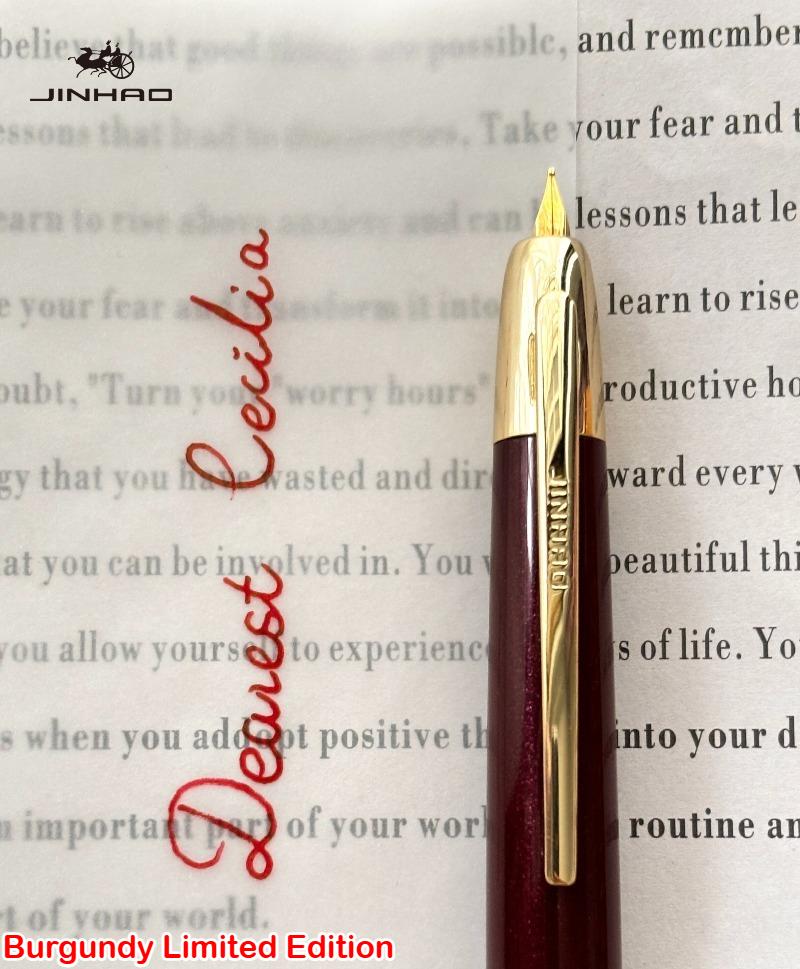 believe that good things are possible, and remember
JINHAO
essons that lead to discoveries. Take your fear and t
earn to rise above anxiety and can lessons that le
e your fear and transform it into learn to rise
oubt, "Turn your "worry hours" roductive ho
gy that you have wasted and dir ward every
at you can be involved in. You beautiful thi
you allow yourself to experience s of life. Yo
s when you addopt positive th into your d
important part of your worl routine an
t of your world.
Dearest Cecilia
JINHAO
Burgundy Limited Edition